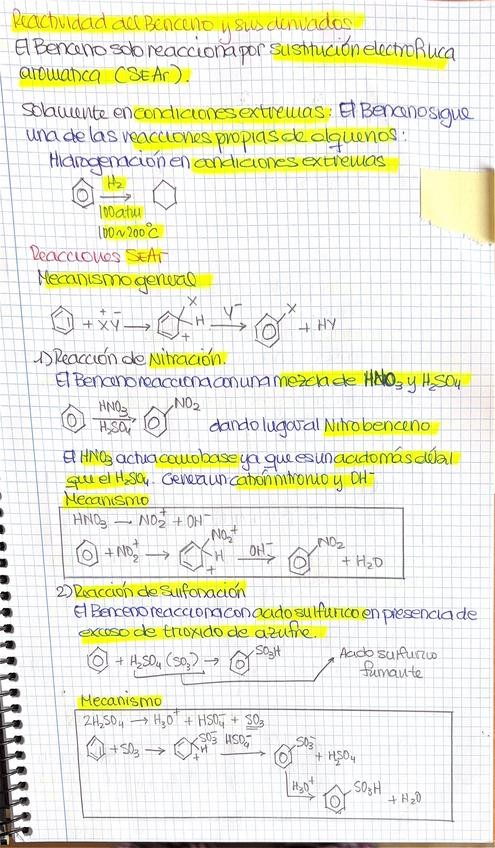 Reactividad del Benceno y sus derivados
El Benceno solo reacciona por sustitución electrofílica
aromática (SEAr).
Solamente en condiciones extremas: El Benceno sigue
una de las reacciones propias de alquenos:
Hidrogenación en condiciones extremas
H₂
100atm
100~200°C
Reacciones SEAr
Mecanismo general
+ X⁺Y⁻ → X H + Y⁻ → X + HY
1) Reacción de Nitración.
El Benceno reacciona con una mezcla de HNO₃ y H₂SO₄
HNO₃ NO₂
H₂SO₄ dando lugar al Nitrobenceno
El HNO₃ actúa como base ya que es un ácido más débil
que el H₂SO₄. Genera un catión nitronio y OH⁻
Mecanismo
HNO₃ → NO₂⁺ + OH⁻
+ NO₂⁺ → NO₂⁺ H + OH⁻ → NO₂ + H₂O
2) Reacción de Sulfonación
El Benceno reacciona con ácido sulfúrico en presencia de
exceso de trióxido de azufre.
+ H₂SO₄ (SO₃) → SO₃H Ácido sulfúrico
fumante
Mecanismo
2H₂SO₄ → H₃O⁺ + HSO₄⁻ + SO₃
+ SO₃ → SO₃⁻ H + HSO₄⁻ → SO₃⁻ + H₂SO₄
H₃O⁺ SO₃H + H₂O